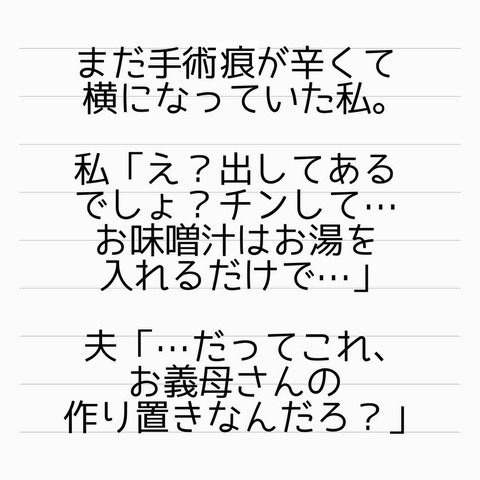 まだ手術痕が辛くて
横になっていた私。
私「え？出してある
でしょ？チンして…
お味噌汁はお湯を
入れるだけで…」
夫「…だってこれ、
お義母さんの
作り置きなんだろ？」